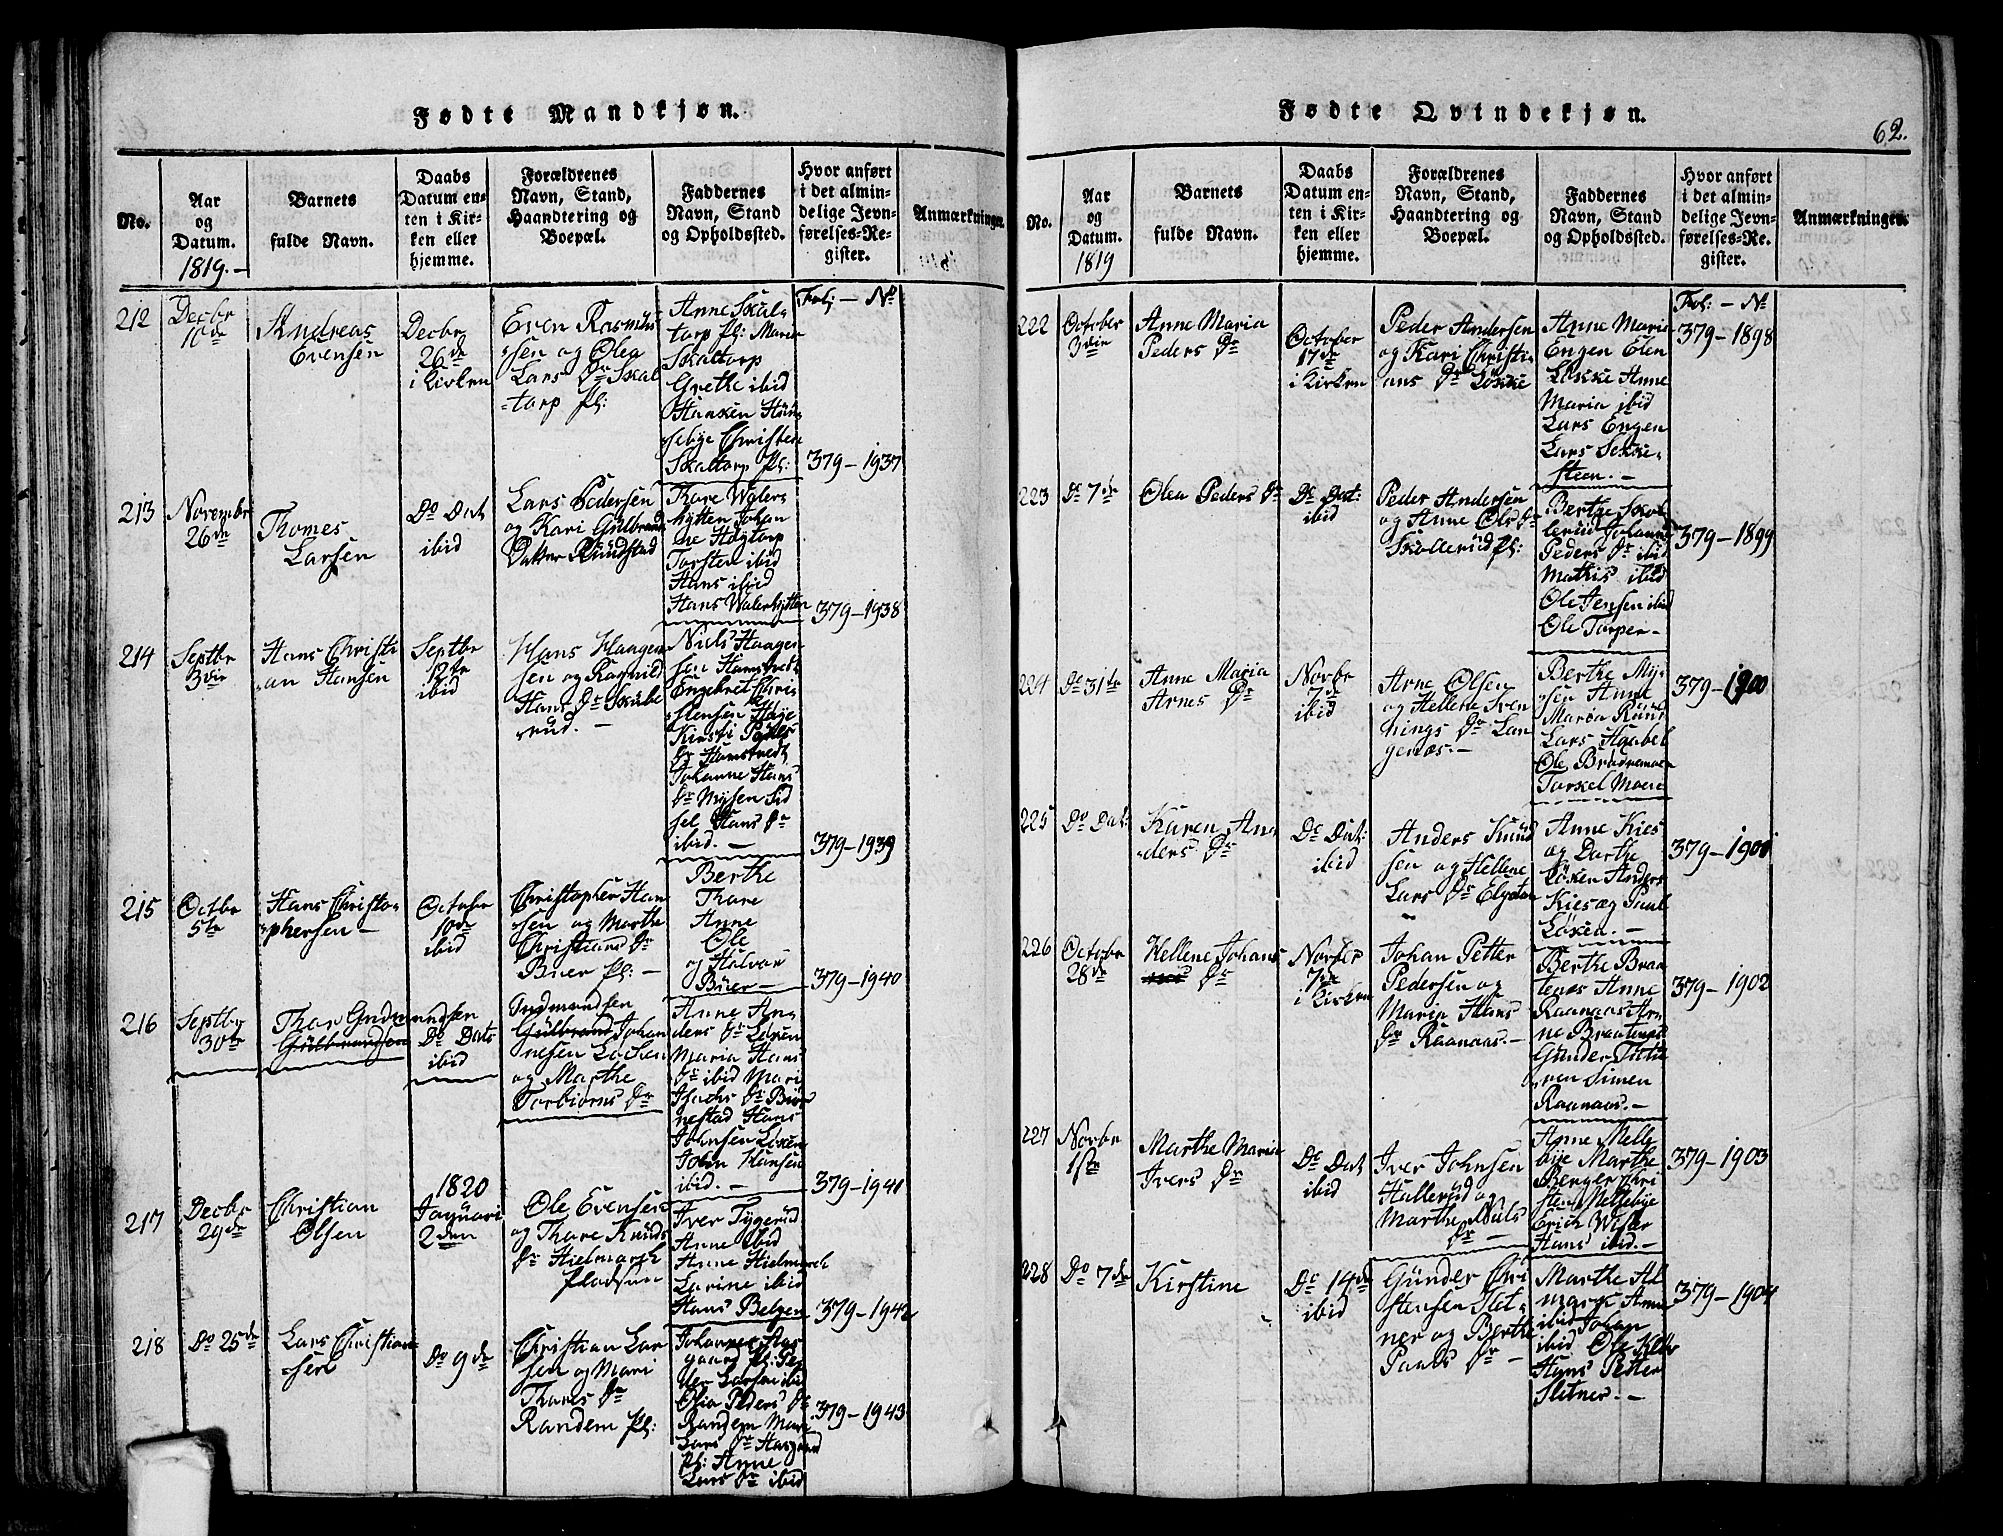 Fødte Mandkjøn.
No.
Aar
og
Datum.
1819.-
Barnets
fulde Navn.
Daabs
Datum en-
ten i Kir-
ken eller
hjemme.
Forældrenes
Navn, Stand,
Haandtering og
Boepæl.
Faddernes
Navn, Stand
og Opholdssted.
Hvor anført
i det almin-
delige Jevn-
førelses-Re-
gister.
Anmærkninger.
Fol: - No
212
Decbr
10de
Andreas
Evensen
Decbr
26de
i Kirken
Even Rasmus
sen og Olea
Lars Dr Skal
torp Pl:
Anne Skal-
torp pl: Maria
Skaltorp
Grethe ibid
Haaken Huu-
sebye Christen
Skaltorp Pl:
379-1937
213
Novembr
26de
Thomes
Larsen
Do Dat
ibid
Lars Pedersen
og Kari Gulbrands
Datter Rundstad
Thore Walers
hytten Johan
ne Hagtorp
Torsten ibid
Hans ibid
Hans Walerhytten
379-1938
214
Septbr
3die
Hans Christi
an Hansen
Septbr
12te
ibid
Hans Haagen
sen og Ragnild
Hans Dr Skube
rud.-
Niels Haagen
sen Hamstvedt
Engebret Chri
stensen Høye
Kirsti Peders
Dr Hamstvedt
Johanne Hans
Dr Mysen Sid
sel Hans Dr
ibid.-
379-1939
215
Octbr
5te
Hans Christo-
phersen-
October
10de
ibid
Christopher Han
sen og Marthe
Christians Dr
Buer Pl:-
Berthe
Thore
Anne
Ole
og Halvor
Buer-
379-1940
216
Septbr
30te
Thor Gudmundsen
Gulbrandsen
Do Dats
ibid
Gudmundsen
Gulbrand Johan
nesen Løken
og Marthe
Torbiørns Dr
Anne An-
ders Dr Løken
Maria Hans
Dr ibid Mari
Isachs Dr Biør
nestad Hans
Johnsen Løken
John Hansen
ibid.-
379-1941
217
Decbr
29de
Christian
Olsen
1820
Januari
2den
Ole Evensen
og Thore Knuds
Dr Hielmarck
pladsen
Iver Tygerud
Anne ibid
Anne Hielmarck
Larine ibid
Hans Belgen
379-1942
218
Do 25de
Lars Christian
sen
Do 9de
Christian Lar
sen og Mari
Thores Dr
Randem Pl:
Johannes Aas
gaard Pl: Pe-
der Larsen ibid
Olia Peders Dr
Randem Mari
Lars Dr Aasgaard
Pl: Anne
Lars Dr ibid
379-1943
Fødte Qvindekjøn.
62.
No.
Aar
og
Datum.
1819
Barnets
fulde Navn.
Daabs
Datum en-
ten i Kir-
ken eller
hjemme.
Forældrenes
Navn, Stand,
Haandtering og
Boepæl.
Faddernes
Navn, Stand
og Opholdssted.
Hvor anført
i det almin-
delige Jevn-
førelses-Re-
gister.
Anmærkninger.
Fol: - No
222
October
3die
Anne Maria
Peders Dr
October
17de
i Kirken
Peder Andersen
og Kari Christi-
ans Dr Løkke
Anne Marie
Engen Elen
Løkke Anne
Maria ibid
Lars Engen
Lars Sekke-
steen.-
379-1898
223
Do 7de
Olea Peders Dr
Do Dat:
ibid
Peder Andersen
og Anne Ols Dr
Skollerud Pl:
Berthe Skol
lerud Johanne
Peders Dr ibid
Mathis ibid
Ole Jensen ibid
Ole Torper-
379-1899
224
Do 31te
Anne Maria
Arnes Dr
Novbr
7de
ibid
Arne Olsen
og Hellene Sven
nings Dr Lan
genæs.-
Berthe My-
sen Anne
Maria Ruud
Lars Haabel
Ole Brødremoen
Torkel Moen
379-1900
225
Do Dat:
Karen An-
ders Dr
Do Dat:
ibid
Anders Knud
sen og Hellene
Lars Dr Elgeton
Anne Kies
og Dorthe
Løken Anders
Kies og Poul
Løken.-
379-1901
226
October
28de
Hellene Johans
Dr
Novber
7de
i Kirken
Johan Petter
Pedersen og
Maria Hans
Dr Raanaas.-
Berthe Braa
tenas Anne
Raanaas Ar-
ne Braatenas
Gunder Titu
ren Simen
Raanaas.-
379-1902
227
Novbr
1ste
Marthe Maria
Ivers Dr
Do Dat
ibid
Iver Johnsen
Hallerud og
Marthe Niels
Dr-
Anne Melle
bye Marthe
Berger Chri
sten Mellebye
Erich Wister
Hans ibid.-
379-1903
228
Do 7de
Kirstine
Do 14de
ibid
Gunder Chri
stensen Slet-
ner og Berthe
Pouls Dr-
Marthe Al
mark Anne
ibid Johan
ibid Ole Ketter
Hans Petter
Sletner.-
379-1904